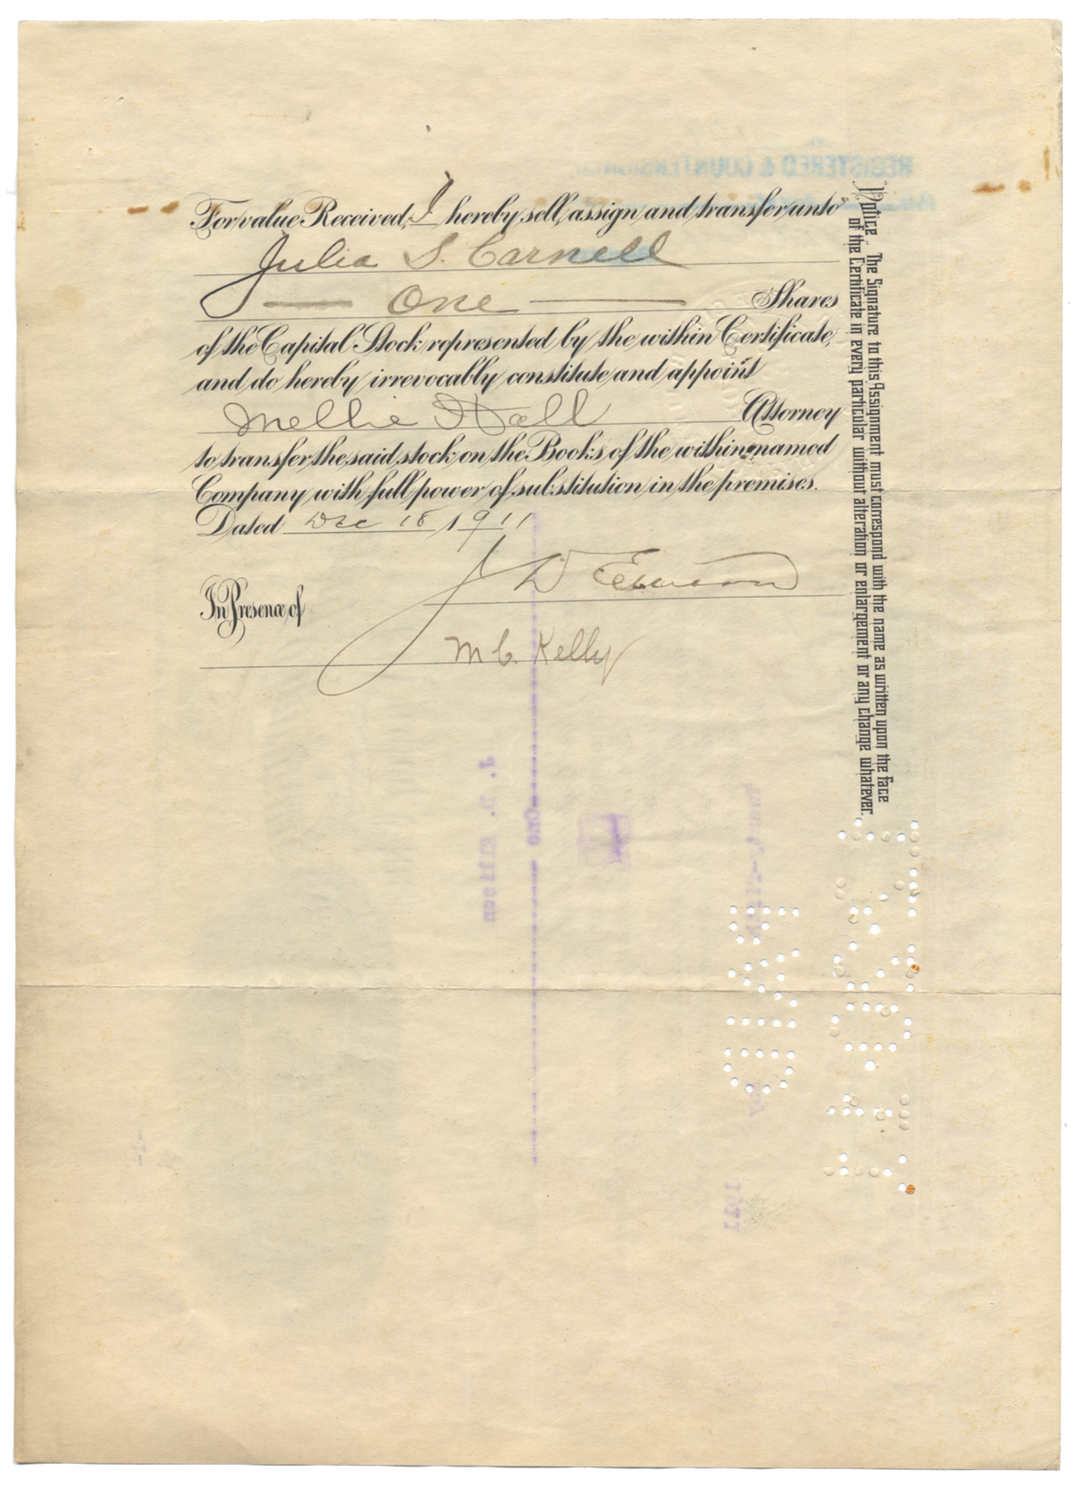 For value Received, I hereby sell, assign and transfer unto
Julia S. Carnell
One Shares
of the Capital Stock represented by the within Certificate,
and do hereby irrevocably constitute and appoint
Nellie Hall Attorney
to transfer the said stock on the Books of the within named
Company with full power of substitution in the premises.
Dated Dec 18 1911
J D
In Presence of
M C. Kelly
Notice. The Signature to this Assignment must correspond with the name as written upon the face
of the Certificate in every particular without alteration or enlargement or any change whatever.
REGISTERED & COUNTERSIGNED
One
J. D. Ellison
PAID
1911